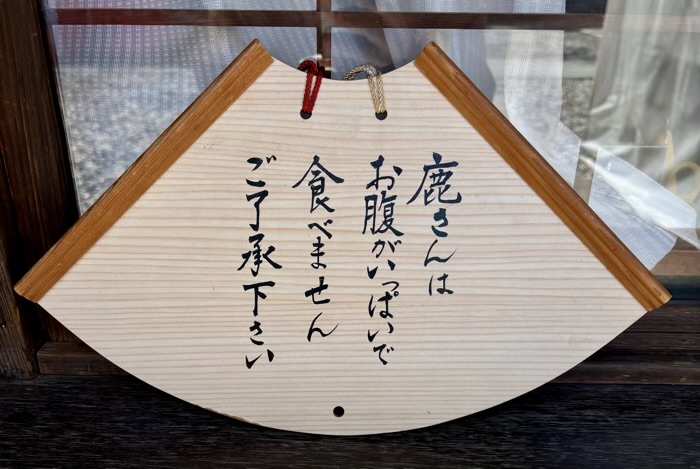 鹿さんは
お腹がいっぱいで
食べません
ご了承下さい